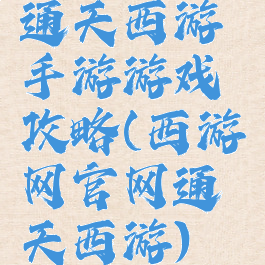 通天西游
手游游戏
攻略(西游
网官网通
天西游)